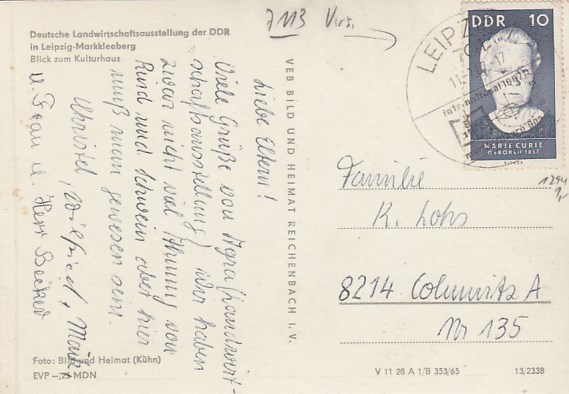 7113 Virs.
Deutsche Landwirtschaftsausstellung der DDR
in Leipzig-Markkleeberg
Blick zum Kulturhaus
Liebe Eltern!
Viele Grüße von Agra (Landwirt-
schaftsausstellung) wir haben
zwar nicht viel Ahnung von
Rind und Schwein aber hier
muß man gewesen sein.
Christel, Wilfried,
u. Frau u. Herr Becker
VEB BILD UND HEIMAT REICHENBACH I. V.
LEIPZ
DDR 10
MARIE CURIE
GEBOREN 1867
Familie
K. Lohs
8214 Colmnitz A
Nr 135
Foto: Bild und Heimat (Kühn)
EVP –,25 MDN
V 11 28 A 1/B 353/65
13/2338